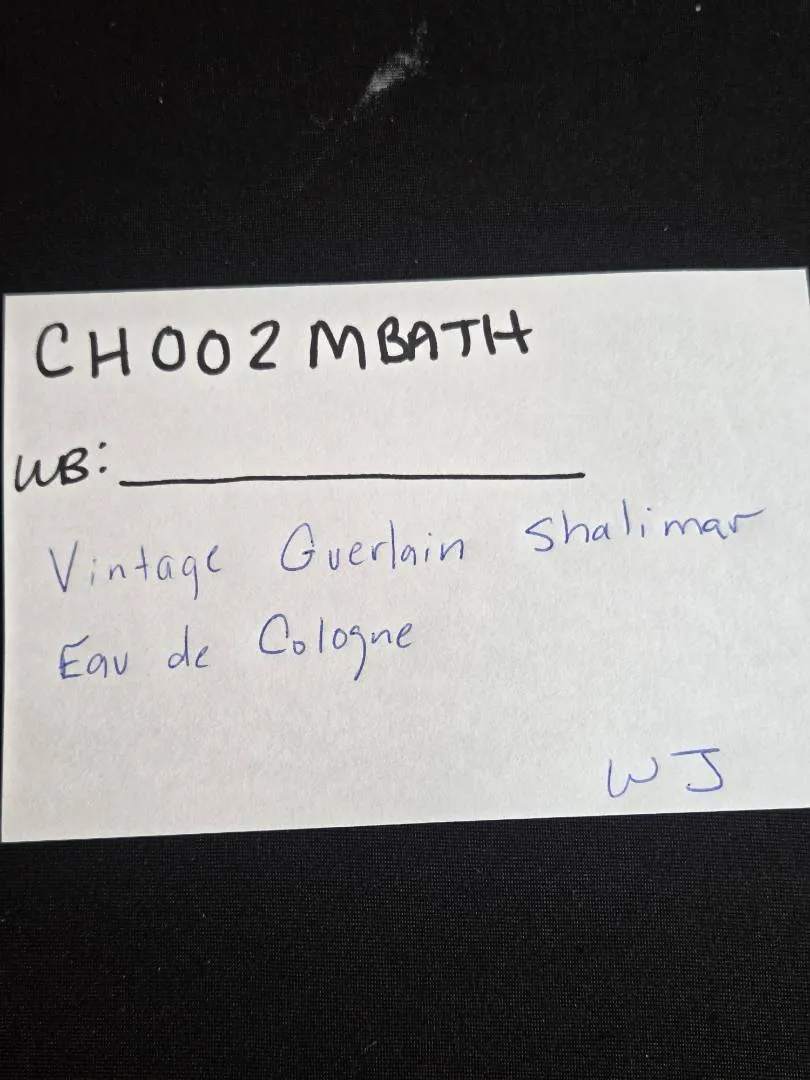 CH002 MBATH
WB: ____________________
Vintage Guerlain Shalimar
Eau de Cologne
WJ